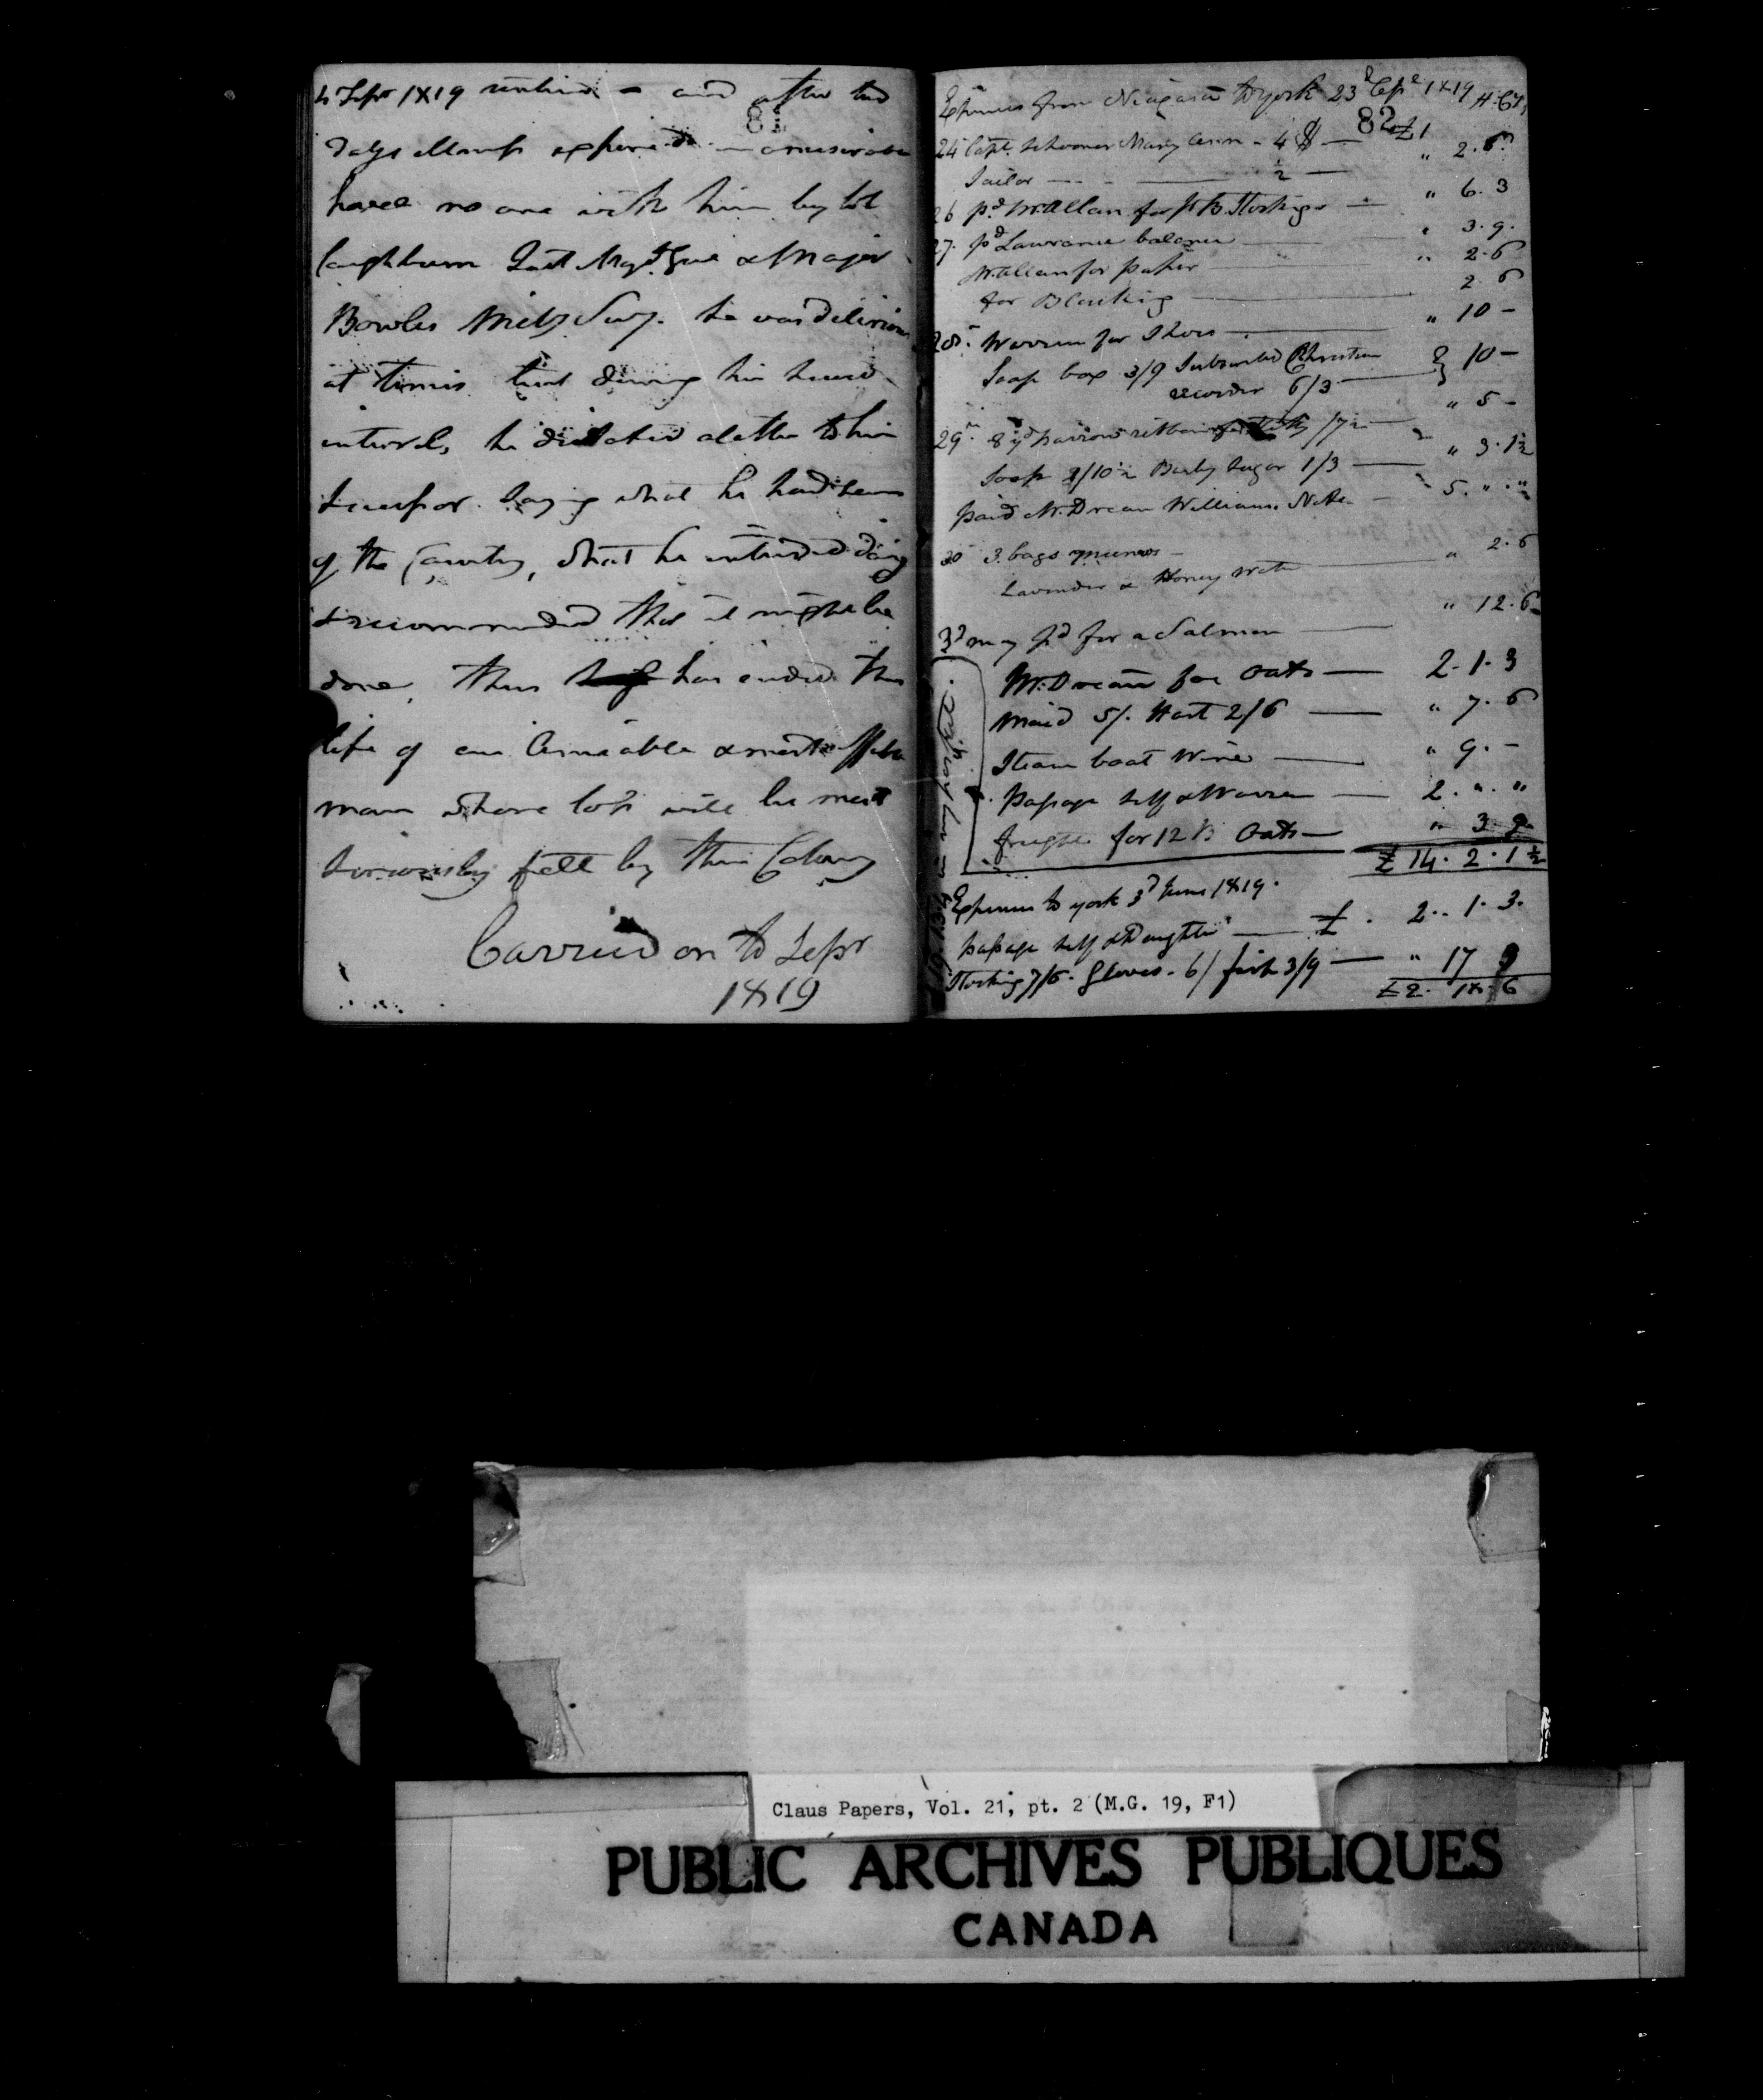 4 Sepr 1819 retired - and after two
81
days illness expired in a miserable
hovel no one with him but Col
Cockburn Qart Mas.r Genl & Major
Bowles Mily Secy. he was delirious
at times but during his lucid
intervals, he dictated a letter to his
Successor. saying what he had seen
of the Country, what he intended doing
& recommended that it might be
done, thus has ended the
life of an Amiable & most
man whose loss will be most
felt by this Colony
Carried on to Sepr
1819
Expenses from Niagara to york 23d Sepr 1819 H. Cy
82
24 Capt. Schooner Mary Ann - 4 $ — £1
Sailor — ½ — " 2.6
26 pd. Mr. Allan for Stockings — " 6.3
27. pd Lawrance balance — " 3.9.
Mr. Allan for paper — " 2.6
for Blacking — 2.6
28. Warren for Shoes — " 10 -
Soap box 3/9 Subscribed Christian
recorder 6/3 — } 10 -
29. 8 yd narrow ribbon /7½ — " 5 -
Soap 1/10½ Barly Sugar 1/3 — " 3.1½
paid Mr. Drean Williams Note — 5. " . "
30 3 bags
Lavender & Honey Water — " 2.6
3d may pd for a Salmon — " 12.6
Mr. Drean for Oats — 2.1.3
Maid 5/. Hart 2/6 — " 7.6
Steam boat Wine — " 9. -
Passage self & Warren — 2. " . "
freight for 12 B Oats — " 3 9
£ 14.2.1½
Expences to york 3d June 1819.
passage self & Daughter — £. 2..1.3.
Stocking 7/6. Gloves. 6/ fish 3/9 — " 17 3
£2. 18. 6
Claus Papers, Vol. 21, pt. 2 (M.G. 19, F1)
PUBLIC ARCHIVES PUBLIQUES
CANADA